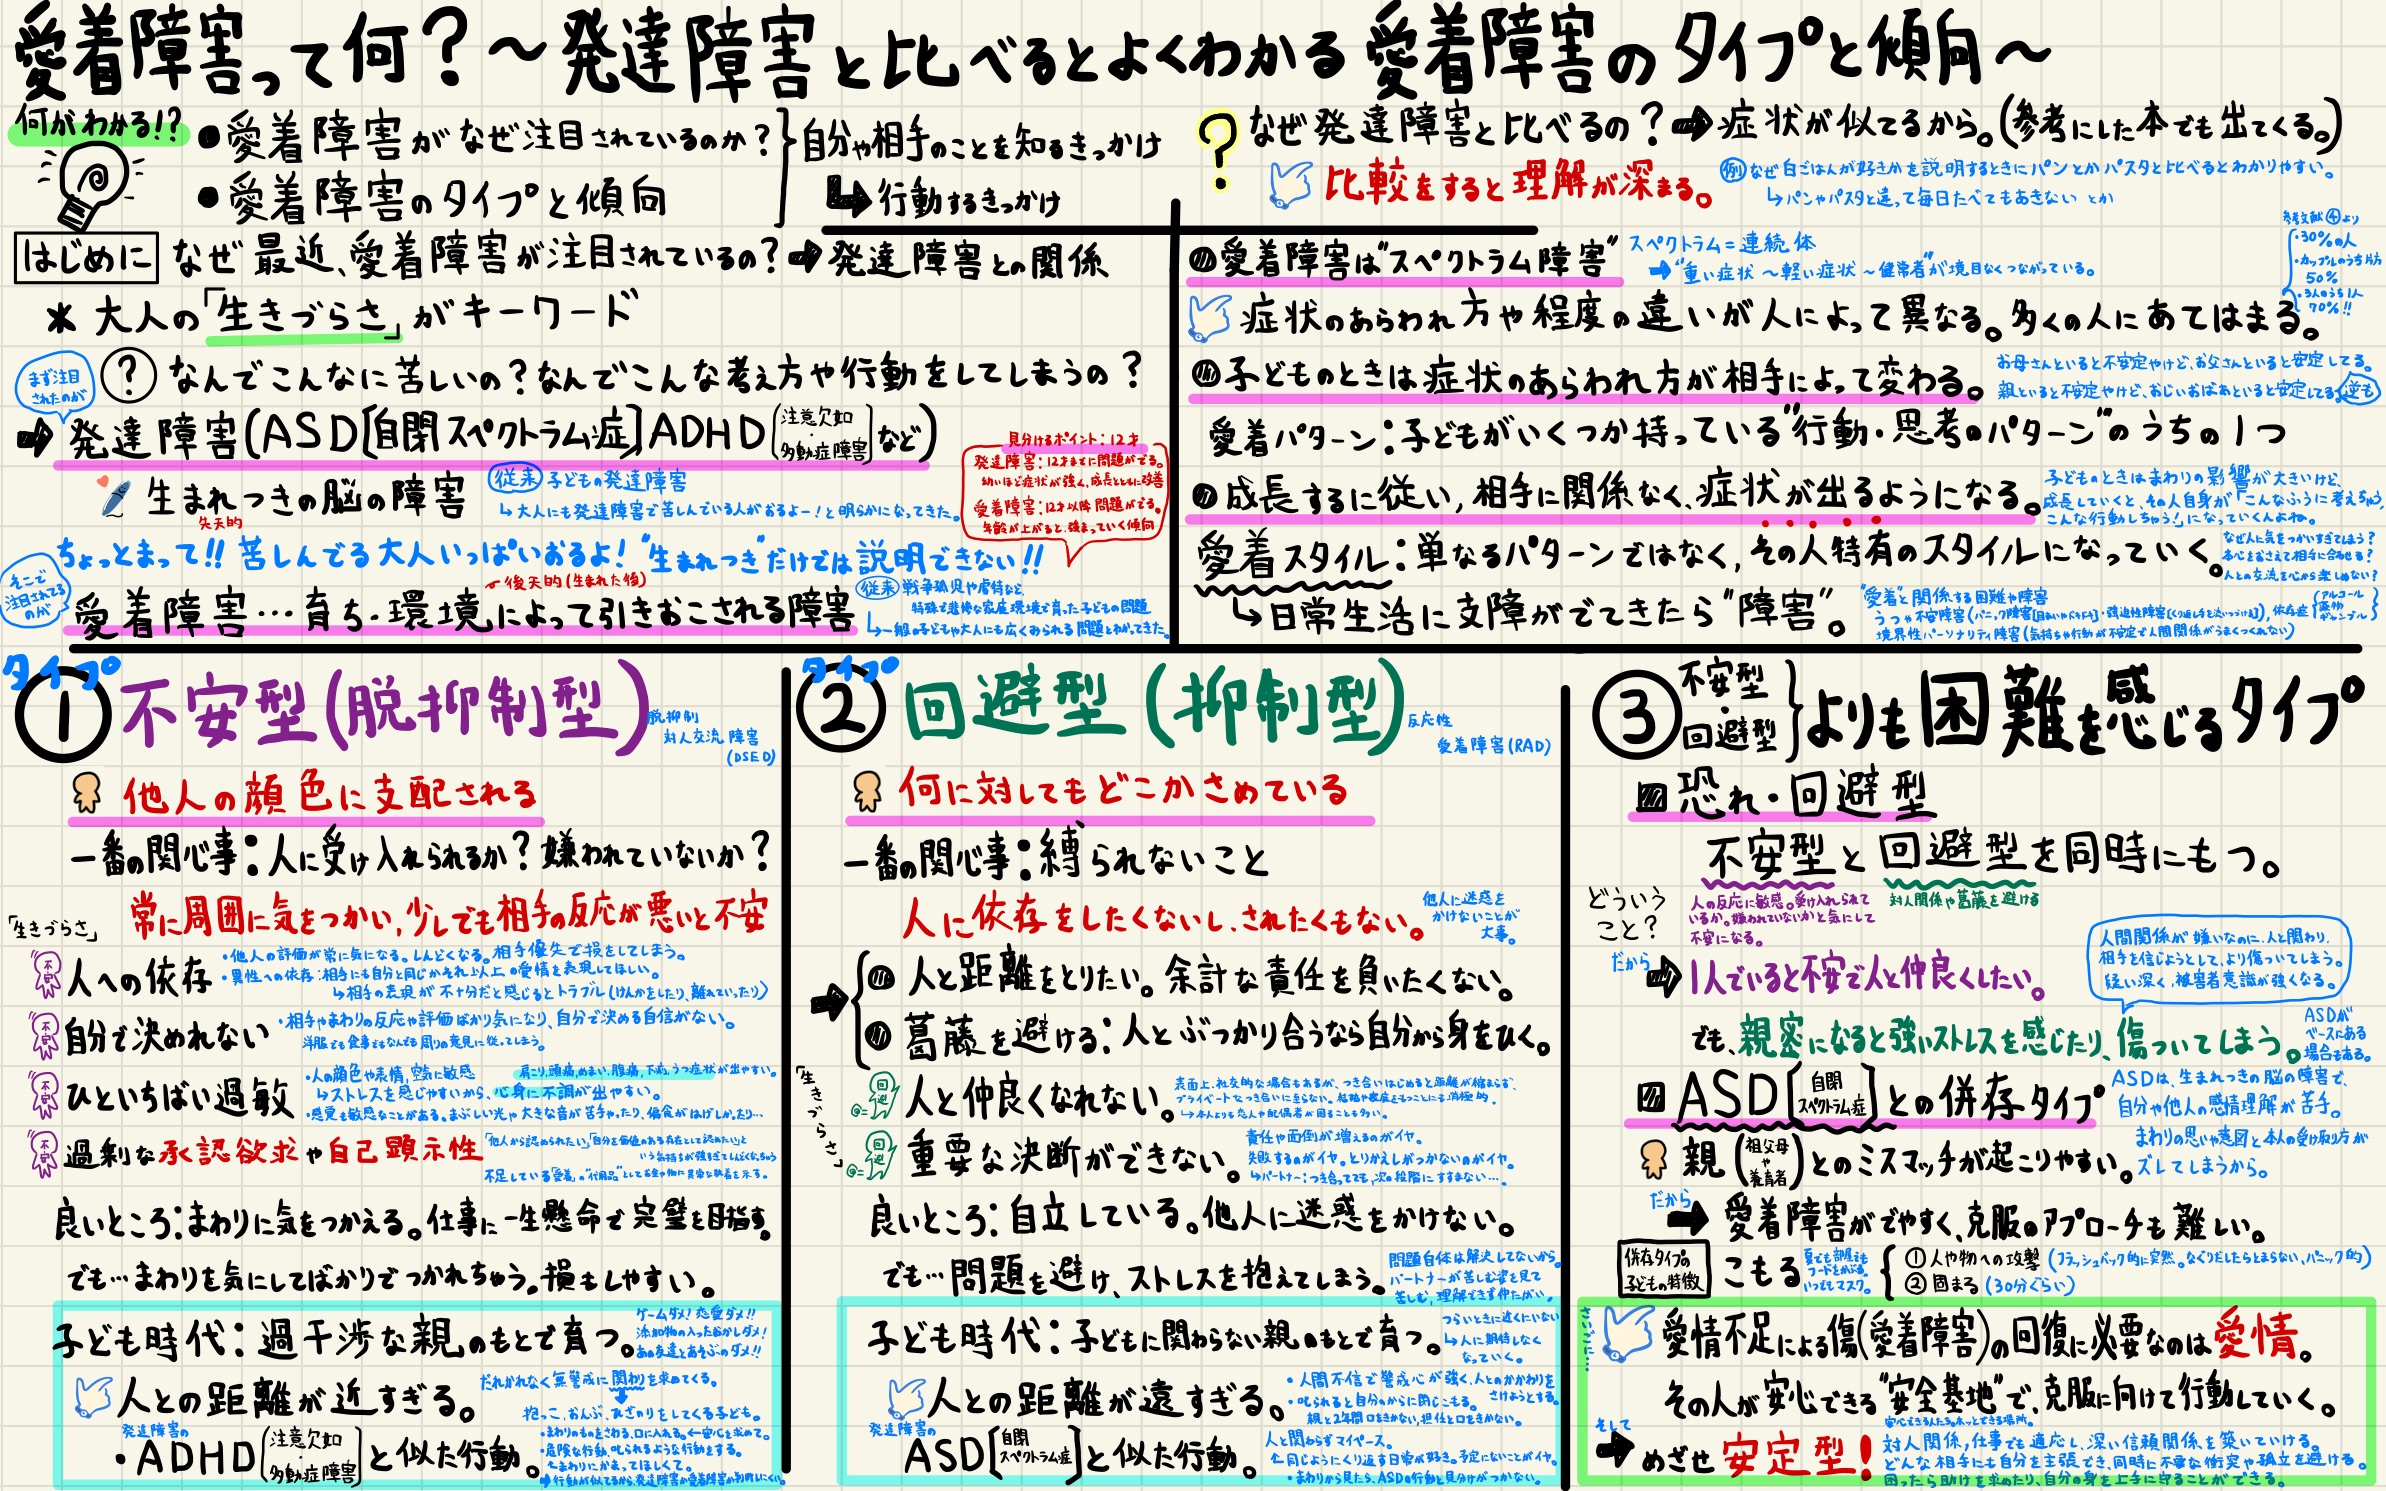 愛着障害って何？～発達障害と比べるとよくわかる愛着障害のタイプと傾向～
何がわかる!?
●愛着障害がなぜ注目されているのか？
●愛着障害のタイプと傾向
自分や相手のことを知るきっかけ
↳行動するきっかけ
？なぜ発達障害と比べるの？➡症状が似てるから。(参考にした本でも出てくる。)
比較をすると理解が深まる。
例 なぜ白ごはんが好きかを説明するときにパンとかパスタと比べるとわかりやすい。
↳パンやパスタと違って毎日たべてもあきない とか
はじめに なぜ最近、愛着障害が注目されているの？➡発達障害との関係
＊大人の「生きづらさ」がキーワード
まず注目されたのが
？なんでこんなに苦しいの？なんでこんな考え方や行動をしてしまうの？
➡発達障害(ASD[自閉スペクトラム症]ADHD(注意欠如・多動症障害)など)
生まれつきの脳の障害
先天的
従来 子どもの発達障害
↳大人にも発達障害で苦しんでいる人がおるよー！と明らかになってきた。
見分けるポイント：12才
発達障害：12才までに問題がでる。
幼いほど症状が強く、成長とともに改善
愛着障害：12才以降問題がでる。
年齢が上がると、強まっていく傾向
ちょっとまって!! 苦しんでる大人いっぱいおるよ！"生まれつき"だけでは説明できない!!
そこで注目されてるのが
後天的(生まれた後)
愛着障害…育ち・環境によって引きおこされる障害
従来 戦争孤児や虐待など、
特殊で悲惨な家庭環境で育った子どもの問題
↳一般の子どもや大人にも広くみられる問題とわかってきた。
愛着障害は"スペクトラム障害"
スペクトラム＝連続体
➡"重い症状～軽い症状～健常者"が境目なくつながっている。
参考文献④より
・30%の人
・カップルのうち片方
50%
・3人のうち1人
70%!!
症状のあらわれ方や程度の違いが人によって異なる。多くの人にあてはまる。
子どものときは症状のあらわれ方が相手によって変わる。
お母さんといると不安定やけど、お父さんといると安定してる。
親といると不安定やけど、おじいおばあといると安定してる 逆も
愛着パターン：子どもがいくつか持っている"行動・思考のパターン"のうちの1つ
成長するに従い、相手に関係なく、症状が出るようになる。
子どものときはまわりの影響が大きいけど、
成長していくと、その人自身が「こんなふうに考えちゃう、
こんな行動しちゃう！」になっていくんよね。
愛着スタイル：単なるパターンではなく、その人特有のスタイルになっていく。
なぜ人に気をつかいすぎてしまう？
本心をおさえて相手に合わせる？
人との交流を心から楽しめない？
↳日常生活に支障がでてきたら"障害"。
"愛着"と関係する困難や障害
うつや不安障害(パニック障害[目まいやドキドキ]・強迫性障害(くり返し手を洗いつづける))、依存症(アルコール 薬物 ギャンブル)
境界性パーソナリティ障害(気持ちや行動が不安定で人間関係がうまくつくれない)
タイプ
① 不安型(脱抑制型)
脱抑制
対人交流障害
(DSED)
他人の顔色に支配される
一番の関心事：人に受け入れられるか？嫌われていないか？
常に周囲に気をつかい、少しでも相手の反応が悪いと不安
「生きづらさ」
不安
人への依存
・他人の評価が常に気になる。しんどくなる。相手優先で損をしてしまう。
・異性への依存：相手にも自分と同じかそれ以上の愛情を表現してほしい。
↳相手の表現が不十分だと感じるとトラブル(けんかをしたり、離れていったり)
不安
自分で決めれない
・相手やまわりの反応や評価ばかり気になり、自分で決める自信がない。
洋服でも食事でもなんでも周りの意見に従ってしまう。
不安
ひといちばい過敏
・人の顔色や表情、空気に敏感
肩こり、頭痛、めまい、腹痛、下痢、うつ症状が出やすい。
↳ストレスを感じやすいから、心身に不調が出やすい。
・感覚も敏感なことがある。まぶしい光や大きな音が苦手やったり、偏食がはげしかったり…
不安
過剰な承認欲求や自己顕示性
「他人から認められたい」「自分を価値のある存在として認めたい」と
いう気持ちが強すぎてしんどくなっちゃう
不足している「愛着」の"代用品"としてお金や物に異常な執着を示す。
良いところ：まわりに気をつかえる。仕事に一生懸命で完璧を目指す。
でも…まわりを気にしてばかりでつかれちゃう。損もしやすい。
子ども時代：過干渉な親のもとで育つ。
ゲームダメ！恋愛ダメ!!
添加物の入ったおかしダメ！
あの友達とあそぶのダメ!!
人との距離が近すぎる。
だれかれなく無警戒に関わりを求めてくる。
抱っこ、おんぶ、ひざのりをしてくる子ども。
・まわりのものをさわる、口に入れる。←安心を求めて。
・危険な行動、叱られるような行動をする。
←まわりにかまってほしくて。
発達障害の
・ADHD(注意欠如・多動症障害)と似た行動。
➡行動が似てるから、発達障害か愛着障害か判別しにくい。
タイプ
② 回避型(抑制型)
反応性
愛着障害(RAD)
何に対してもどこかさめている
一番の関心事：縛られないこと
人に依存をしたくないし、されたくもない。
他人に迷惑を
かけないことが
大事。
人と距離をとりたい。余計な責任を負いたくない。
葛藤を避ける：人とぶつかり合うなら自分から身をひく。
「生きづらさ」
回避
人と仲良くなれない。
表面上、社交的な場合もあるが、つき合いはじめると距離が縮まらず、
プライベートなつき合いに至らない。結婚や家庭をもつことにも消極的。
↳本人よりも恋人や配偶者が困ることも多い。
回避
重要な決断ができない。
責任や面倒が増えるのがイヤ。
失敗するのがイヤ。とりかえしがつかないのがイヤ。
↳パートナー：つき合ってても、次の段階にすすまない…。
良いところ：自立している。他人に迷惑をかけない。
でも…問題を避け、ストレスを抱えてしまう。
問題自体は解決してないから、
パートナーが苦しむ姿を見て
苦しむ、理解できず仲たがい。
子ども時代：子どもに関わらない親のもとで育つ。
つらいときに近くにいない
↳人に期待しなく
なっていく。
人との距離が遠すぎる。
・人間不信で警戒心が強く、人とのかかわりを
さけようとする。
・叱られると自分のからに閉じこもる。
親と2年間口をきかない、担任と口をきかない。
発達障害の
ASD[自閉スペクトラム症]と似た行動。
人と関わらずマイペース。
←同じようにくり返す日常が好き。予定にないことがイヤ。
・まわりから見たら、ASDの行動と見分けがつかない。
③ 不安型・回避型 よりも困難を感じるタイプ
恐れ・回避型
不安型と回避型を同時にもつ。
どういうこと？
人の反応に敏感。受け入れられて
いるか。嫌われていないかと気にして
不安になる。
対人関係や葛藤を避ける
だから
➡1人でいると不安で人と仲良くしたい。
人間関係が嫌いなのに、人と関わり、
相手を信じようとして、より傷ついてしまう。
疑い深く、被害者意識が強くなる。
でも、親密になると強いストレスを感じたり、傷ついてしまう。
ASDが
ベースにある
場合もある。
ASD[自閉スペクトラム症]との併存タイプ
ASDは、生まれつきの脳の障害で、
自分や他人の感情理解が苦手。
まわりの思いや意図と本人の受け取り方が
ズレてしまうから。
親(祖父母や養育者)とのミスマッチが起こりやすい。
だから
➡愛着障害がでやすく、克服のアプローチも難しい。
併存タイプの子どもの特徴
こもる
夏でも部屋でも
フードをかぶる。
いつでもマスク。
①人や物への攻撃(フラッシュバック的に突然。なぐりだしたらとまらない、パニック的)
②固まる(30分ぐらい)
さいごに…
愛情不足による傷(愛着障害)の回復に必要なのは愛情。
その人が安心できる"安全基地"で、克服に向けて行動していく。
安心できる人たち、ホッとできる場所。
そして
➡めざせ安定型！
対人関係、仕事でも適応し、深い信頼関係を築いていける。
どんな相手にも自分を主張でき、同時に不要な衝突や孤立を避ける。
困ったら助けを求めたり、自分の身を上手に守ることができる。